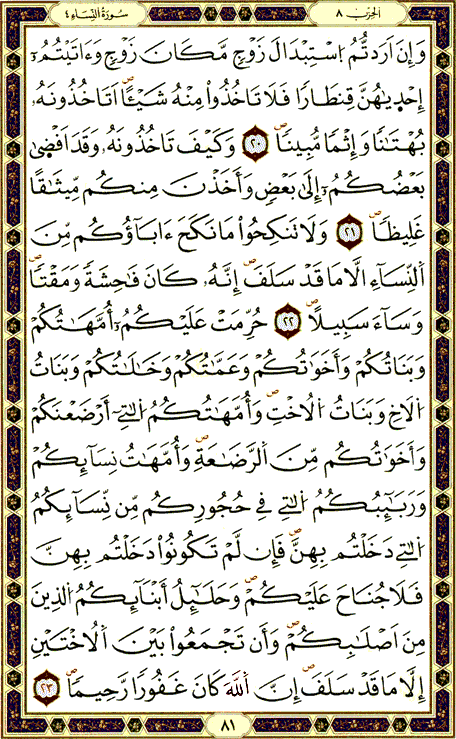 سُورَةُ النِّسَاءِ ٤ الحِزْب ٨
وَإِنَ اَرَدتُّمُ اُسْتِبْدَالَ زَوْجٍ مَّكَانَ زَوْجٍ وَءَاتَيْتُمُۥٓ
إِحْدٜيٰهُنَّ قِنطَارًا فَلَا تَاخُذُوا۟ مِنْهُ شَيْـًٔا اَتَاخُذُونَهُۥ
بُهْتَٰنًا وَإِثْمًا مُّبِينًا ٢٠ وَكَيْفَ تَاخُذُونَهُۥ وَقَدَ اَفْضٜىٰ
بَعْضُكُمُۥٓ إِلَىٰ بَعْضٍ وَأَخَذْنَ مِنكُم مِّيثَٰقًا
غَلِيظًا ٢١ وَلَا تَنكِحُوا۟ مَا نَكَحَ ءَابَآؤُكُم مِّنَ
اَلنِّسَآءِ الَّا مَا قَدْ سَلَفَ إِنَّهُۥ كَانَ فَٰحِشَةً وَمَقْتًا
وَسَآءَ سَبِيلًا ٢٢ حُرِّمَتْ عَلَيْكُمُۥٓ أُمَّهَٰتُكُمْ
وَبَنَاتُكُمْ وَأَخَوَٰتُكُمْ وَعَمَّٰتُكُمْ وَخَٰلَٰتُكُمْ وَبَنَاتُ
اُلَاخِ وَبَنَاتُ اُلُاخْتِ وَأُمَّهَٰتُكُمُ اُلَّٰتِےٓ أَرْضَعْنَكُمْ
وَأَخَوَٰتُكُم مِّنَ اَلرَّضَٰعَةِ وَأُمَّهَٰتُ نِسَآئِكُمْ
وَرَبَٰٓئِبُكُمُ اُلَّٰتِے فِے حُجُورِكُم مِّن نِّسَآئِكُمُ
اُلَّٰتِے دَخَلْتُم بِهِنَّ فَإِن لَّمْ تَكُونُوا۟ دَخَلْتُم بِهِنَّ
فَلَا جُنَاحَ عَلَيْكُمْ وَحَلَٰٓئِلُ أَبْنَآئِكُمُ اُلذِينَ
مِنَ اَصْلَٰبِكُمْ وَأَن تَجْمَعُوا۟ بَيْنَ اَلُاخْتَيْنِ
إِلَّا مَا قَدْ سَلَفَ إِنَّ اَللَّهَ كَانَ غَفُورًا رَّحِيمًا ٢٣
٨١